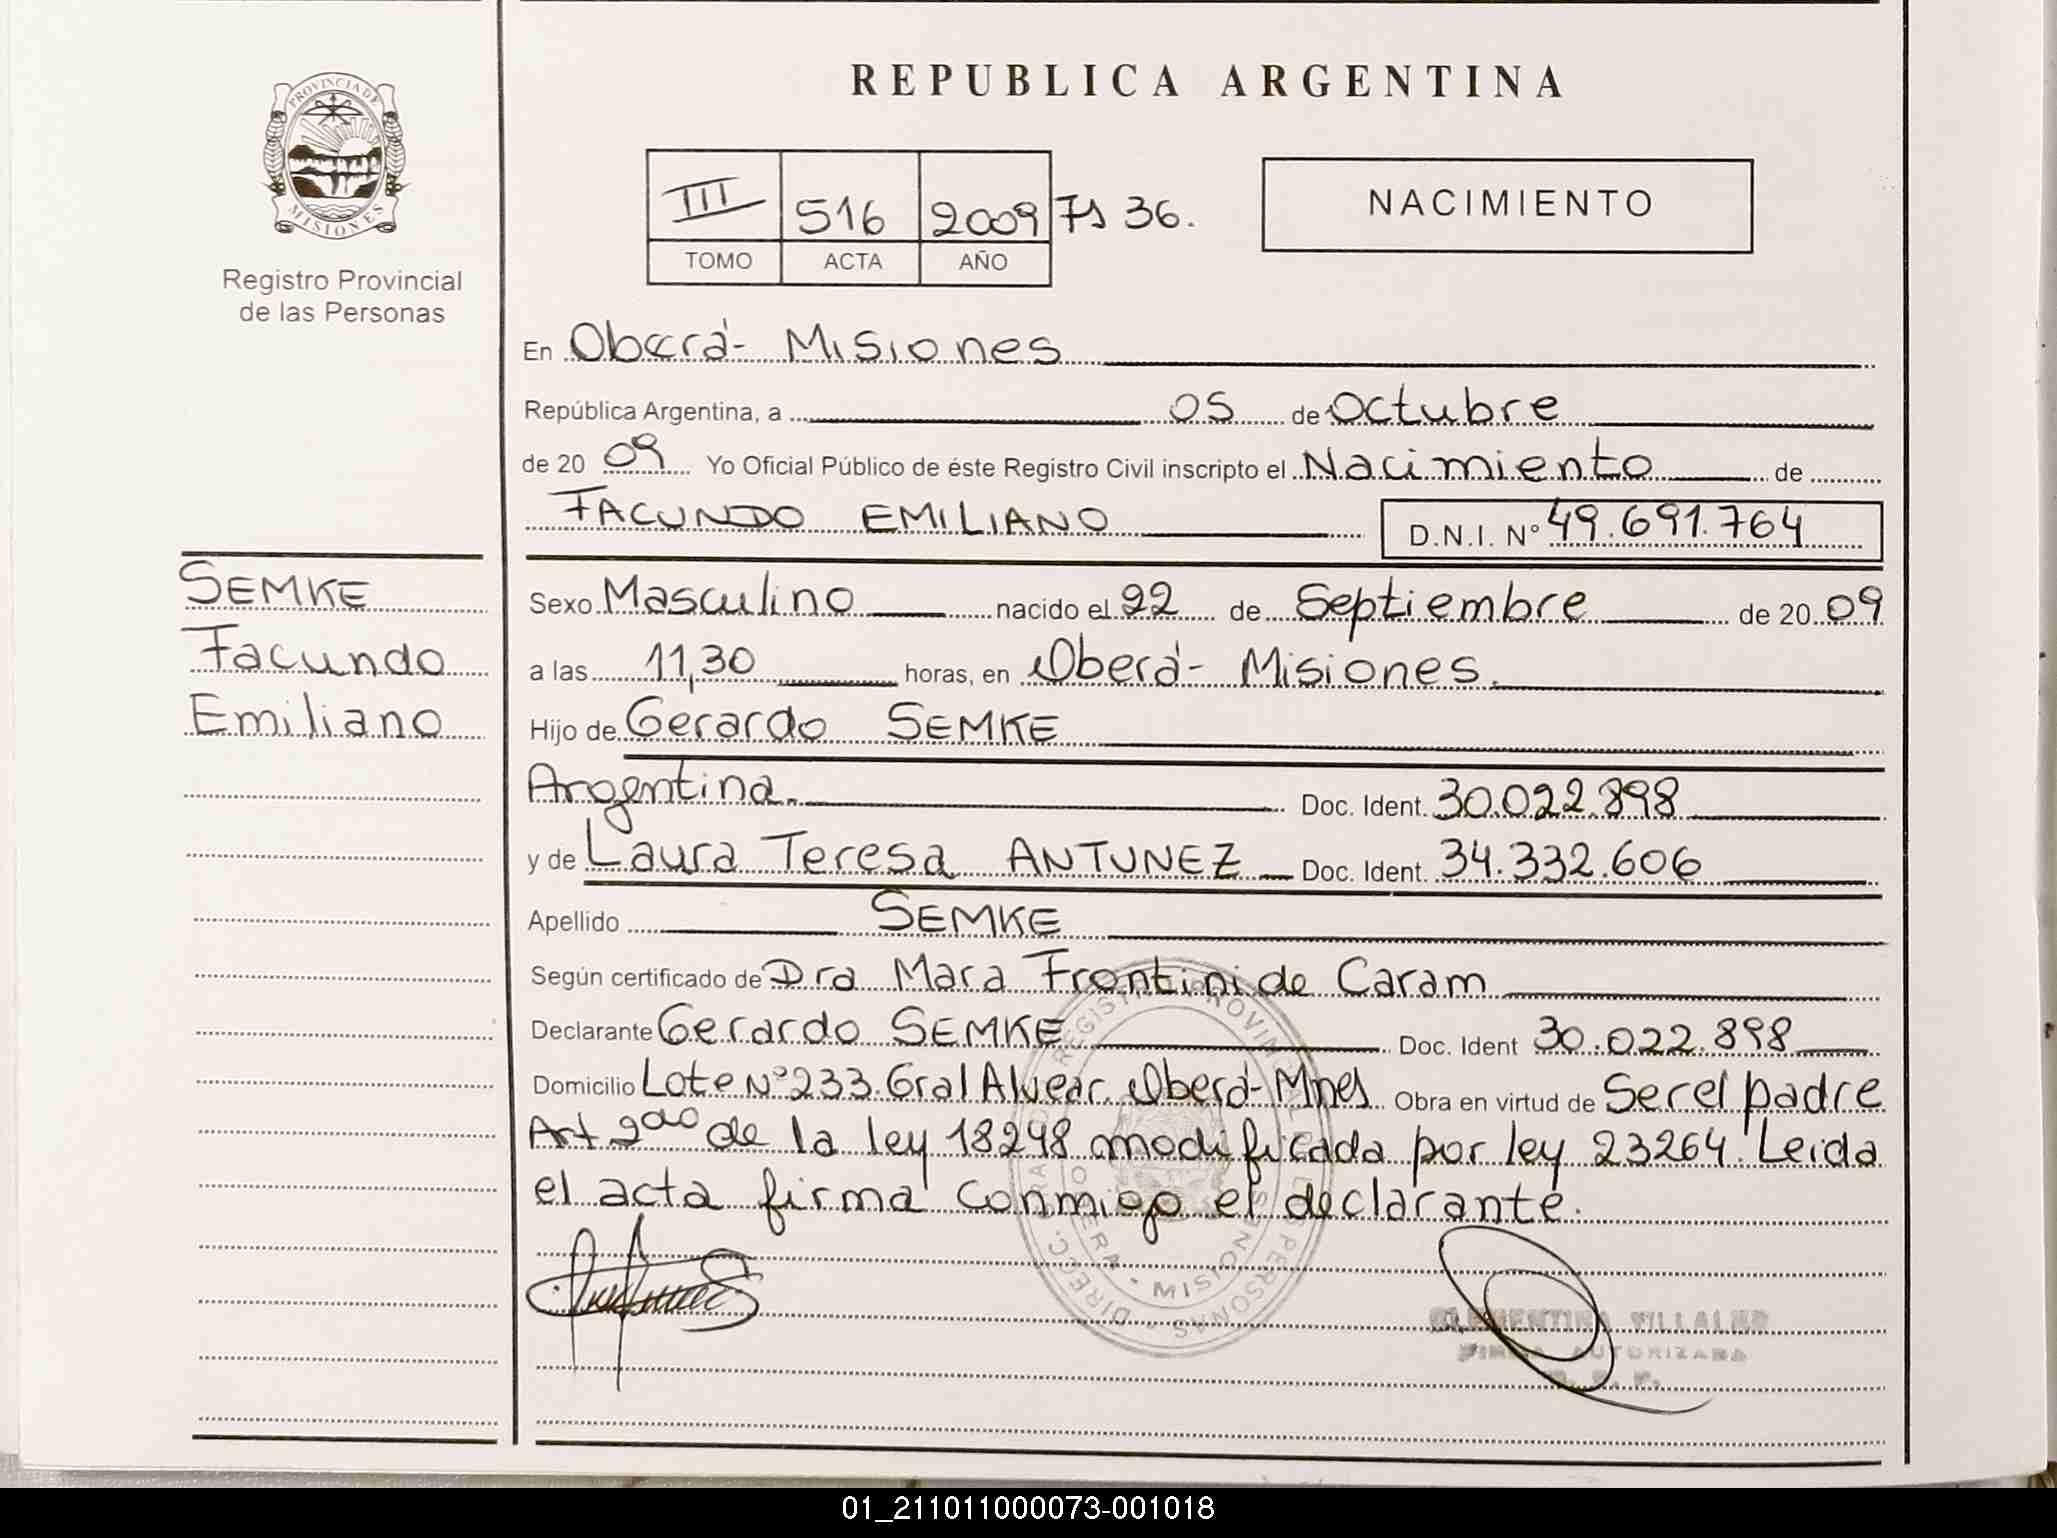 PROVINCIA DE
MISIONES
Registro Provincial
de las Personas
REPUBLICA ARGENTINA
III 516 2009 Fs 36.
TOMO ACTA AÑO
NACIMIENTO
En Oberá- Misiones
República Argentina, a 05 de Octubre
de 20 09 Yo Oficial Público de éste Registro Civil inscripto el Nacimiento de
FACUNDO EMILIANO D.N.I. Nº 49.691.764
SEMKE
Facundo
Emiliano
Sexo Masculino nacido el 22 de Septiembre de 20 09
a las 11,30 horas, en Oberá- Misiones.
Hijo de Gerardo SEMKE
Argentina. Doc. Ident. 30.022.898
y de Laura Teresa ANTUNEZ Doc. Ident. 34.332.606
Apellido SEMKE
Según certificado de Dra Mara Frontini de Caram
Declarante Gerardo SEMKE Doc. Ident 30.022.898
Domicilio Lote Nº 233. Gral Alvear. Oberá- Mnes Obra en virtud de Ser el padre
Art 2do de la ley 18248 modificada por ley 23264. Leida
el acta firma conmigo el declarante.
MISIONES
CLEMENTINA VILLALBA
FIRMA AUTORIZADA
01_211011000073-001018